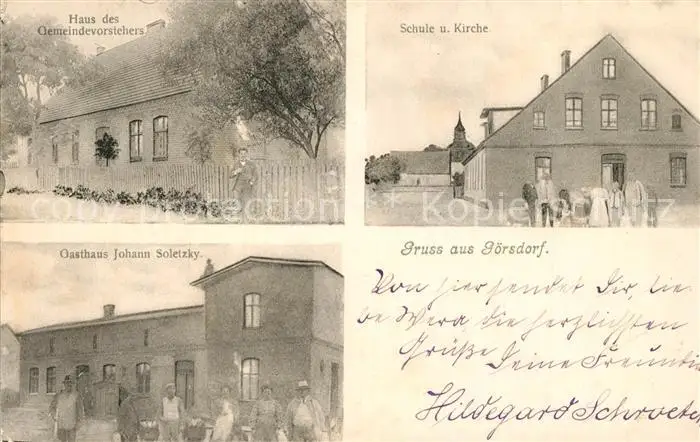 Haus des
Gemeindevorstehers.
Schule u. Kirche
Gasthaus Johann Soletzky.
Gruss aus Görsdorf.
Von hier sendet Dir, lie-
be Wera, die herzlichsten
Grüße Deine Freundin
Hildegard Schroeter